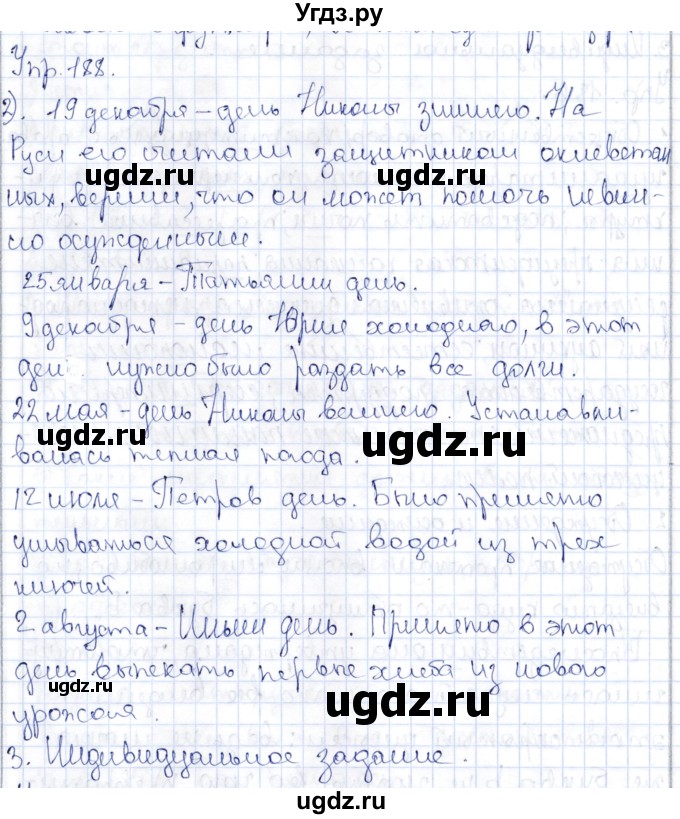 Угдз.ру
Упр. 188.
2). 19 декабря – день Николы зимнего. На
Руси его считали защитником оклеветан
ных, верили, что он может помочь невин-
но осужденным.
25 января – Татьянин день.
9 декабря – день Юрия холодного, в этот
ден нужно было раздать все долги.
22 мая – день Николы вешнего. Устанавли-
валась теплая погода.
12 июля – Петров день. Было принято
умываться холодной водой из трех
ключей.
2 августа – Ильин день. Принято в этот
день выпекать первые хлеба из нового
урожая.
3. Индивидуальное задание.
ugdz.ru
ugdz.ru
ugdz.ru
ugdz.ru
ugdz.ru
ugdz.ru
ugdz.ru
ugdz.ru